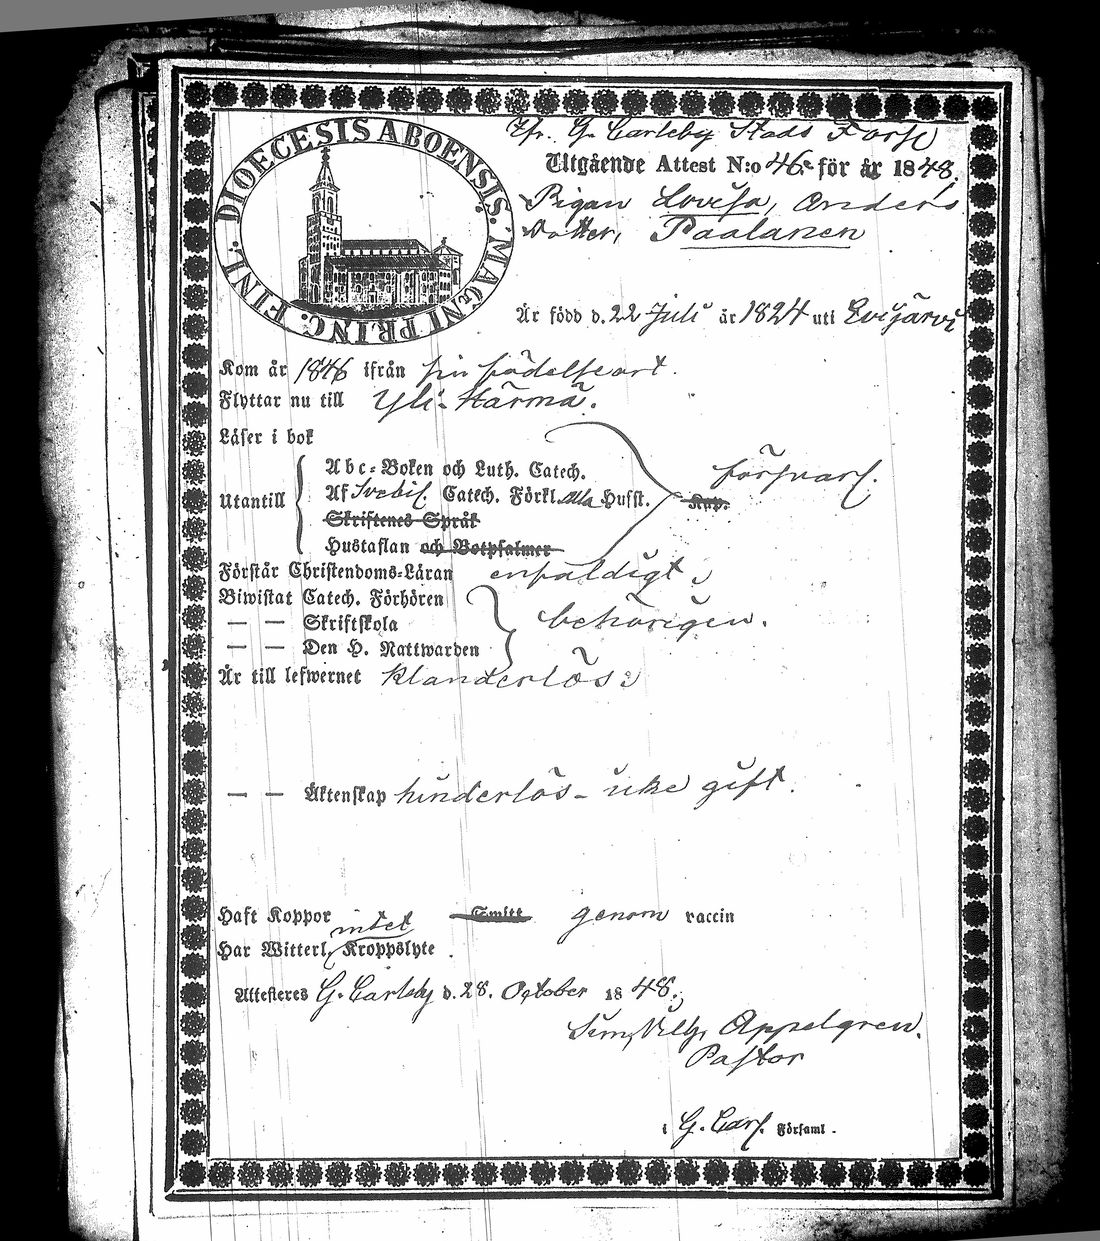 DIOECESIS ABOENSIS. MAGNI PRINC. FINL.
Fr. G. Carleby Stads Förs.
Utgående Attest N:o 46. för år 1848.
Pigan Lovisa, Anders
Dotter, Paalanen
Är född d. 22 Juli år 1824 uti Evijärvi
Kom år 1846 ifrån sin födelseort.
Flyttar nu till Yli-Härmä.
Läser i bok
Abc-Boken och Luth. Catech.
försvarl.
Utantill Af Svebil. Catech. Förkl. alla Hufst. Kap.
Skriftenes Språk
Hustaflan och Botpsalmer
Förstår Christendoms-Läran enfaldigt
Biwistat Catech. Förhören
— — Skriftskola behörigen.
— — Den H. Nattwarden
Är till lefwernet klanderlös
— — Äktenskap hinderlös - icke gift.
Haft Koppor Smitt genom vaccin
intet
Har Witterl. Kroppslyte.
Attesteres G. Carleby d. 28. October 1848.
Sim. Vilh. Appelgren.
Pastor
i G. Carl. Församl.